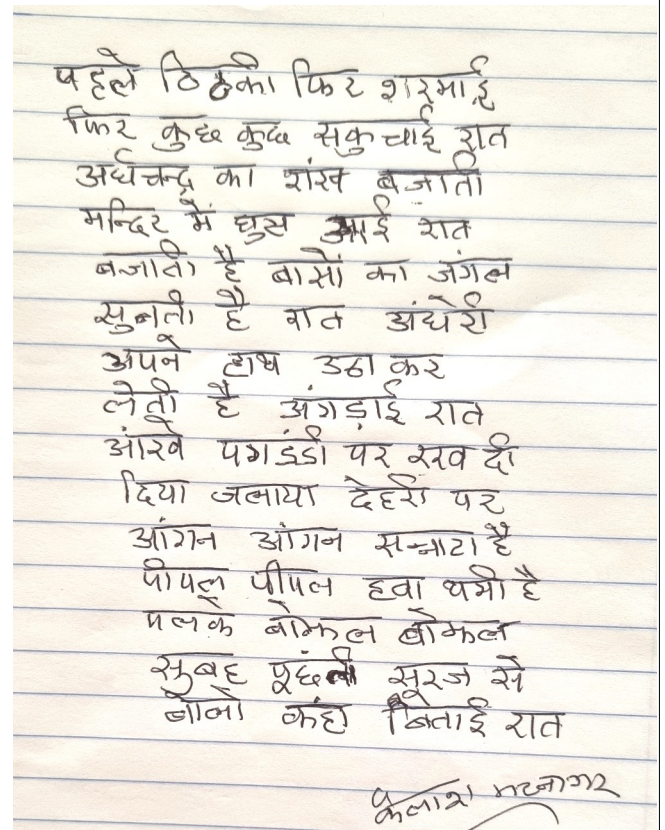 पहले ठिठकी फिर शरमाई
फिर कुछ कुछ सकुचाई रात
अर्धचन्द्र का शंख बजाती
मन्दिर में घुस आई रात
बजाती है बासों का जंगल
सुनती है रात अंधेरी
अपने हाथ उठा कर
लेती है अंगड़ाई रात
आंखे पगडंडी पर रख दी
दिया जलाया देहरी पर
आंगन आंगन सन्नाटा है
पीपल पीपल हवा थमी है
पलके बोझल बोझल
सुबह पूछती सूरज से
बोलो कहां बिताई रात
कैलाश भटनागर